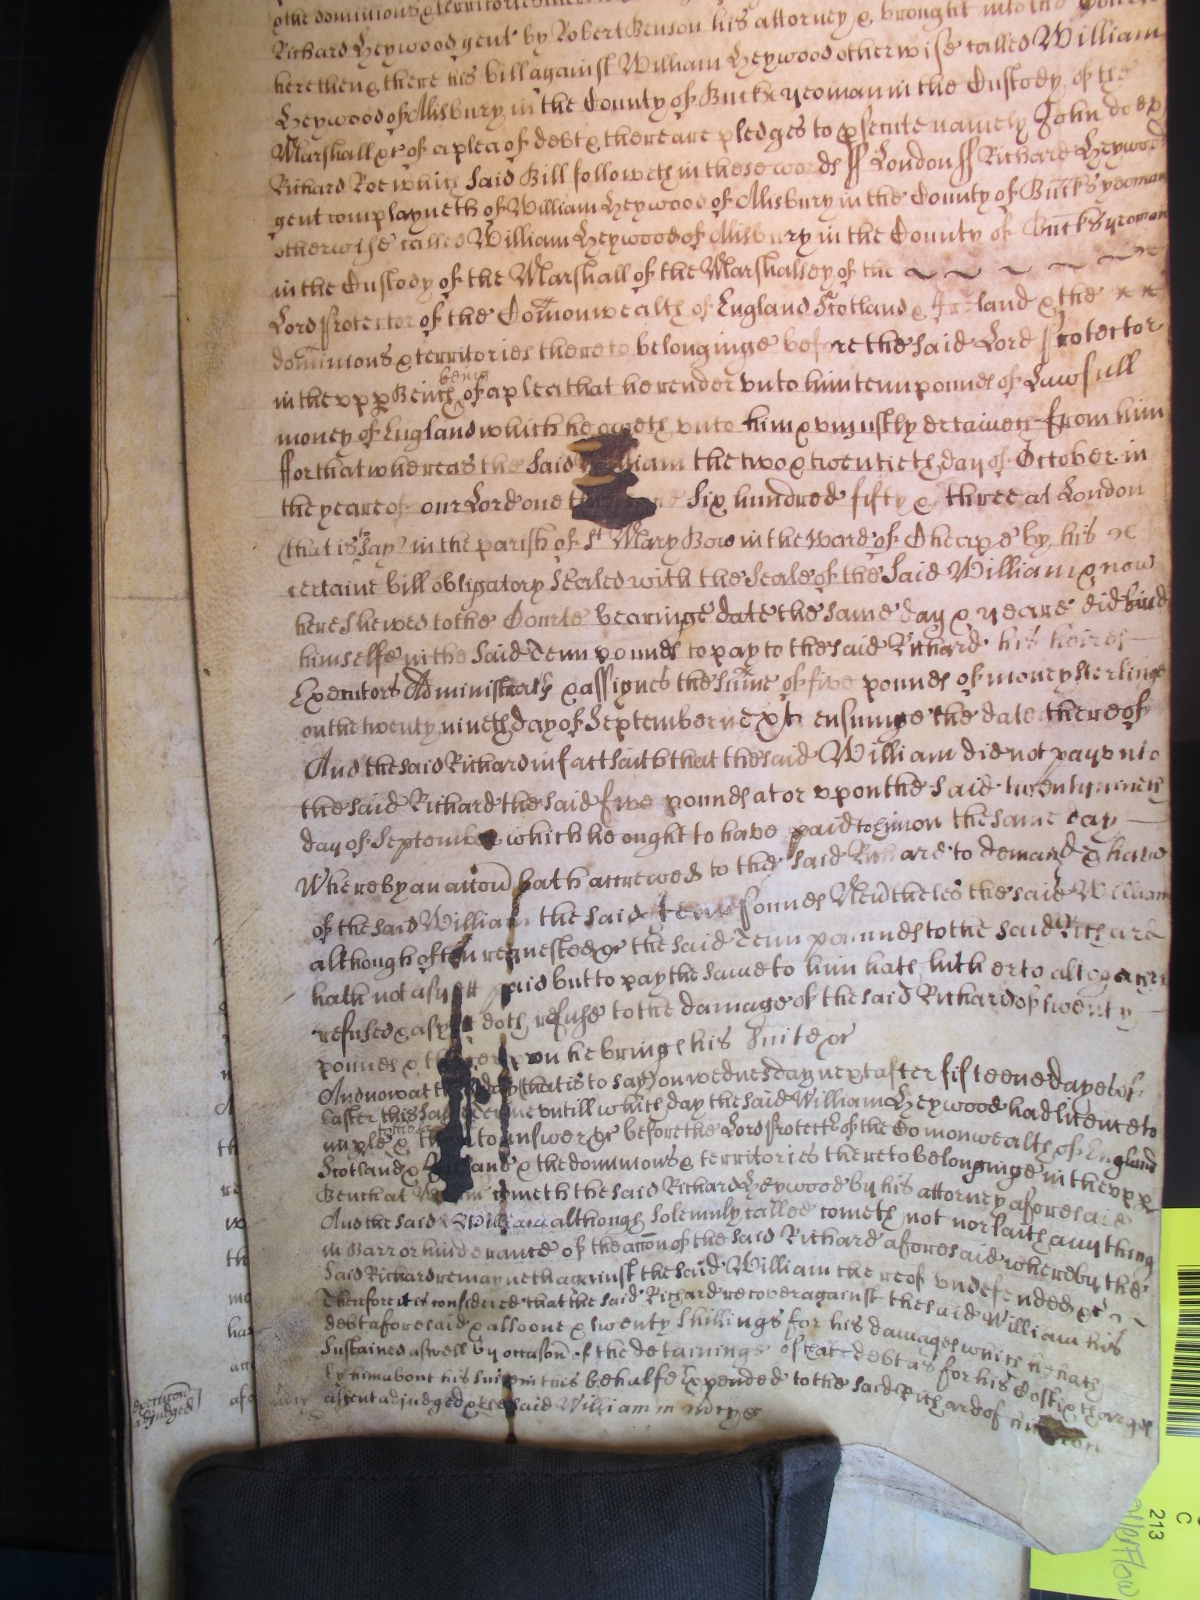 othe dominions & territories
Richard Heywood gent by Robert Benson his attorney & brought into the Court
here then & there his bill against William Heywood otherwise called William
Heywood of Alisbury in the County of Buck yeoman in the Custody of the
Marshall &c of a plea of debt & there are pledges to psecute namely John doe &
Richard Roe which said Bill followeth in these words ss London ss Richard Heywood
gent complayneth of William Heywood of Alisbury in the County of Bucks yeoman
otherwise called William Heywood of Alisbury in the County of Bucks yeoman
in the Custody of the Marshall of the Marshalsey of the
Lord Protector of the Comonwealth of England Scotland & Ireland & the
dominions & territories thereto belonginge before the said Lord Protector
in the upp Bench being of a plea that he render unto him tenn pounds of Lawfull
money of England which he oweth unto him & uniustly detaineth from him
ffor that whereas the said William the two & twentieth day of October in
the yeare of our Lord one six hundred fifty & three at London
(that is to say) in the parish of St Mary Bow in the Ward of Cheape by his
certaine bill obligatory sealed with the seale of the said William & now
here shewed to the Courte bearinge date the same day & yeare did bind
himselfe in the said Tenn pounds to pay to the said Richard his heires
Executors Administrators & assignes the sume of five pounds of money sterlinge
on the twenty nineth day of September next ensuinge the date thereof
And the said Richard in fact saith that the said William did not pay unto
the said Richard the said five pounds at or upon the said twenty nineth
day of September which he ought to have paid to him on the same day
Whereby an accon hath accrewed to the said Richard to demand & have
of the said William the said tenn pounds Nevtheles the said William
although often requested &c the said Tenn pounds to the said Richard
hath not as yett paid but to pay the same to him hath hitherto altogether
refused & as yett doth refuse to the damage of the said Richard of twenty
pounds & thereupon he bringes his suite &c
And now at this day (that is to say) on wednesday next after fifteene dayes of
Easter this same terme untill which day the said William Heywood had licence to
imple & then to answer &c before the Lord Protector of the Comonwealth of England
Scotland & Ireland & the dominions & territories thereto belonginge in the upp
Bench at cometh the said Richard Heywood by his attorney aforesaid
And the said William although solemnly called cometh not nor saith any thing
in Barr or hinderance of the accon of the said Richard aforesaid whereby the
said Richard remayneth against the said William thereof undefended &c
Therefore it is considered that the said Richard recover against the said William his
debt aforesaid & alsoe one & twenty shillings for his damages which he hath
sustained aswell by occasion of the detaininge of that debt as for his Costs & charges
by him about his suit in this behalfe Expended to the said Richard of
assent adjudged & the said William in mercy &c
adjudged
213
C